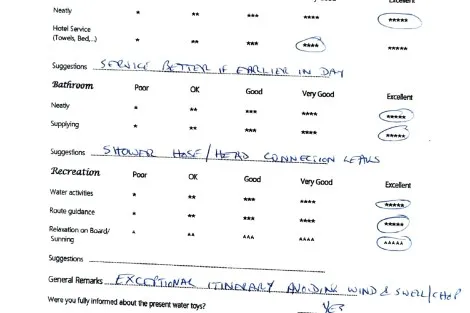 Very Good Excellent
Neatly * ** *** **** *****
Hotel Service
(Towels, Bed,..) * ** *** **** *****
Suggestions SERVICE BETTER IF EARLIER IN DAY
Bathroom Poor OK Good Very Good Excellent
Neatly * ** *** **** *****
Supplying * ** *** **** *****
Suggestions SHOWER HOSE/HEAD CONNECTION LEAKS
Recreation Poor OK Good Very Good Excellent
Water activities * ** *** **** *****
Route guidance * ** *** **** *****
Relaxation on Board/
Sunning ^ ^^ ^^^ ^^^^ ^^^^^
Suggestions
General Remarks EXCEPTIONAL ITINERARY AVOIDING WIND & SWELL/CHOP
Were you fully informed about the present water toys? YES